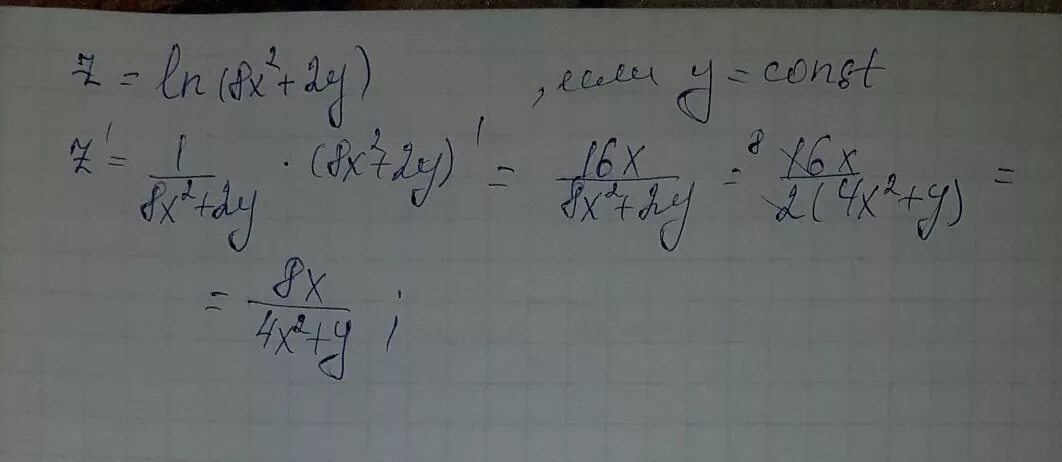 z = ln(8x²+2y) , если y = const
z' = 1/(8x²+2y) · (8x²+2y)' = 16x/(8x²+2y) = ⁸16x/2(4x²+y) =
= 8x/(4x²+y) ;